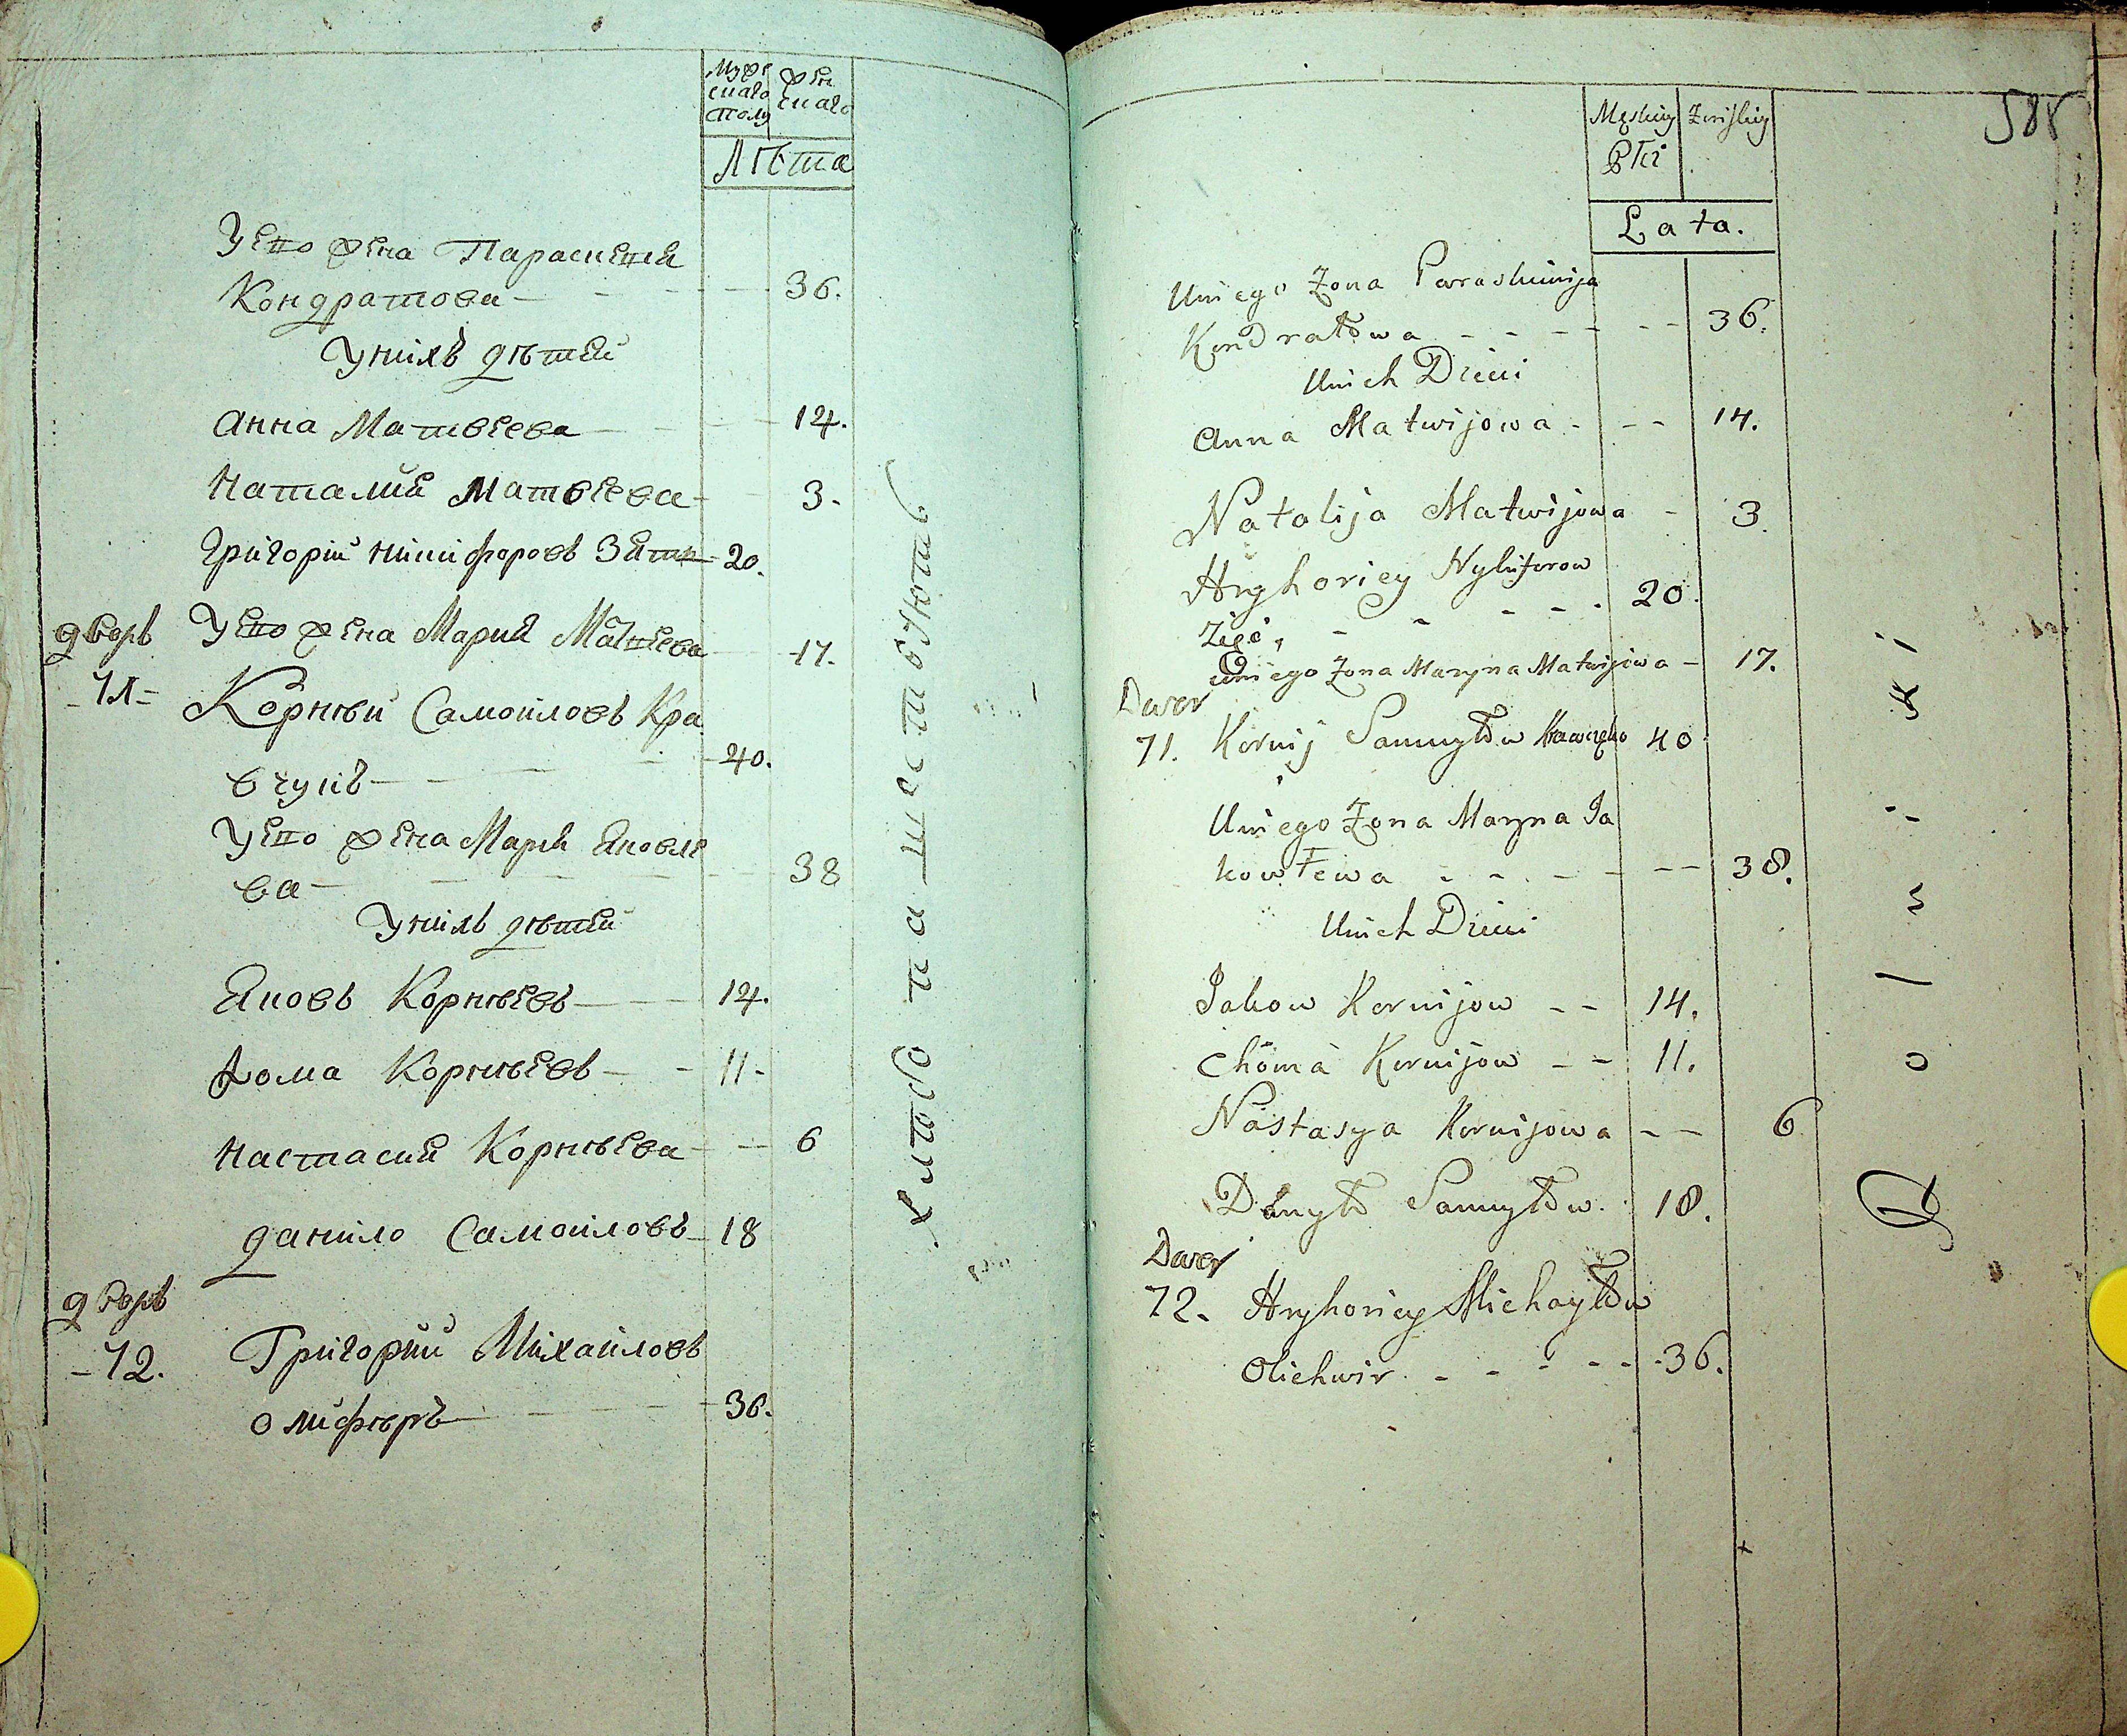 Мужескаго полу
Женскаго
Лѣта
У ево жена Параскевія
Кондратова - - - 36.
У нихъ дѣтей
Анна Матвеева - - - 14.
Наталия Матвеева - 3.
Григорій Никифоровъ Зять - 20.
У ево жена Мария Матвеева - 17.
дворъ
71 Корнѣй Самойловъ Кра
вчукъ - - - 40.
У ево жена Марія Яковле
ва - - - 38
У нихъ дѣтей
Яковъ Корнѣевъ - - 14.
Фома Корнѣевъ - - 11.
Настасия Корнѣева - - 6
Данило Самойловъ - 18
дворъ
72. Григорий Михайловъ
Олифѣръ - - - 36.
Хлибопашествуют
588
Męskiey Płci
Żeńskiey
Lata.
U niego Żona Paraskiwija
Kondratowa - - - 36.
U nich Dzieci
Anna Matwijowa - - - 14.
Natalija Matwijowa - 3.
Hryhoriey Nykiforow
Zięć, - - - 20.
U niego Żona Maryna Matwijowa - 17.
Dwor
71. Kornij Samuyłow Krawczuko 40
U niego Żona Maryna Ja
kowlewa - - - 38.
U nich Dzieci
Jakow Kornijow - - 14.
Choma Kornijow - - 11.
Nastasya Kornijowa - - 6
Danyło Samuyłow. 18.
Dwor
72. Hryhoriey Michayłow
Olichwir - - - 36.
Rolniki